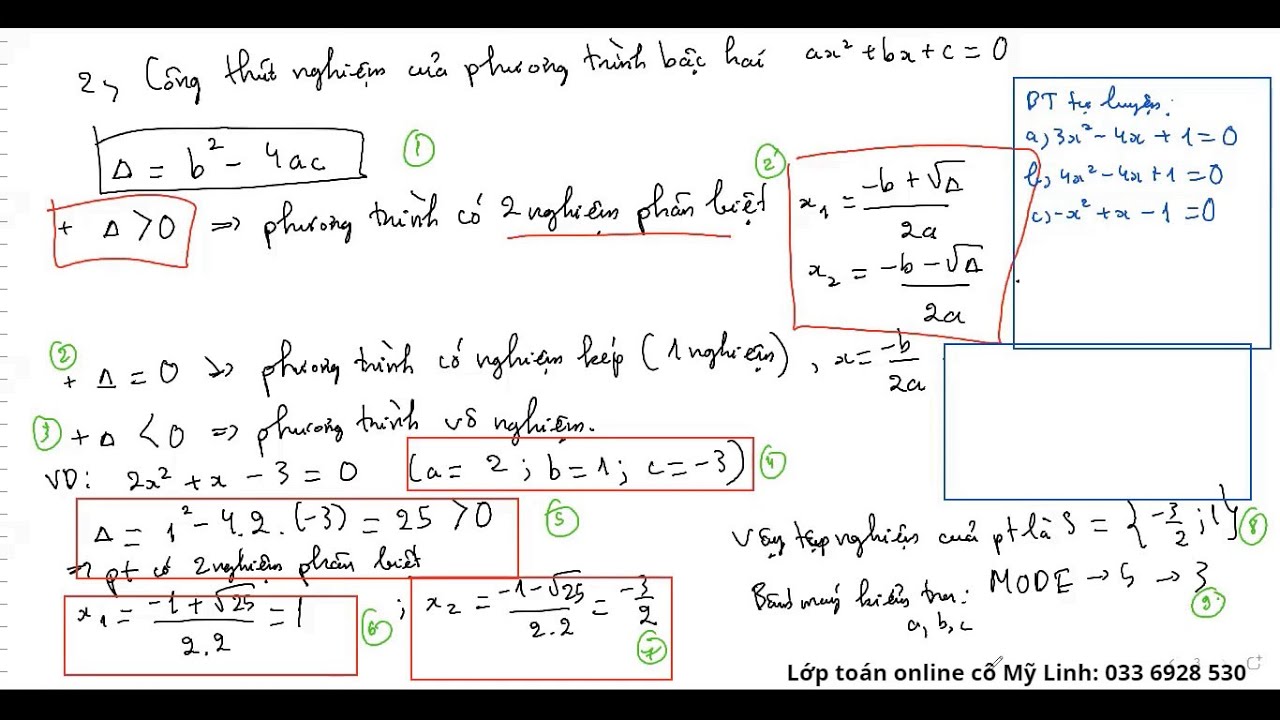 2, Công thức nghiệm của phương trình bậc hai ax² + bx + c = 0
Δ = b² - 4ac ①
+ Δ > 0 => phương trình có 2 nghiệm phân biệt
②' x₁ = (-b + √Δ)/2a
x₂ = (-b - √Δ)/2a
BT tự luyện:
a, 3x² - 4x + 1 = 0
b, 4x² - 4x + 1 = 0
c, -x² + x - 1 = 0
② + Δ = 0 => phương trình có nghiệm kép (1 nghiệm), x = -b/2a
③ + Δ < 0 => phương trình vô nghiệm.
VD: 2x² + x - 3 = 0 (a = 2; b = 1; c = -3) ④
Δ = 1² - 4.2.(-3) = 25 > 0 ⑤
=> pt có 2 nghiệm phân biệt
x₁ = (-1 + √25)/2.2 = 1 ⑥ ; x₂ = (-1 - √25)/2.2 = -3/2 ⑦
Vậy tập nghiệm của pt là S = {-3/2; 1} ⑧
Bấm máy kiểm tra: MODE → 5 → 3 ⑨
a, b, c
Lớp toán online cô Mỹ Linh: 033 6928 530